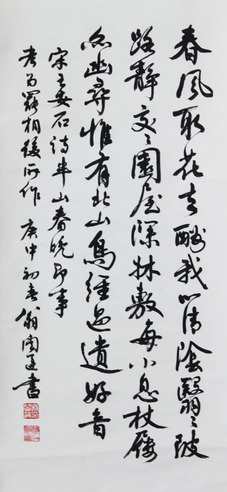 春風取花去酬我以清陰翳〻陂
路靜交〻園屋深牀敷每小息杖屨
亦幽尋惟有北山鳥經過遺好音
宋王安石詩半山春晚即事
考为罷相後所作 庚申初春 翁闓運書